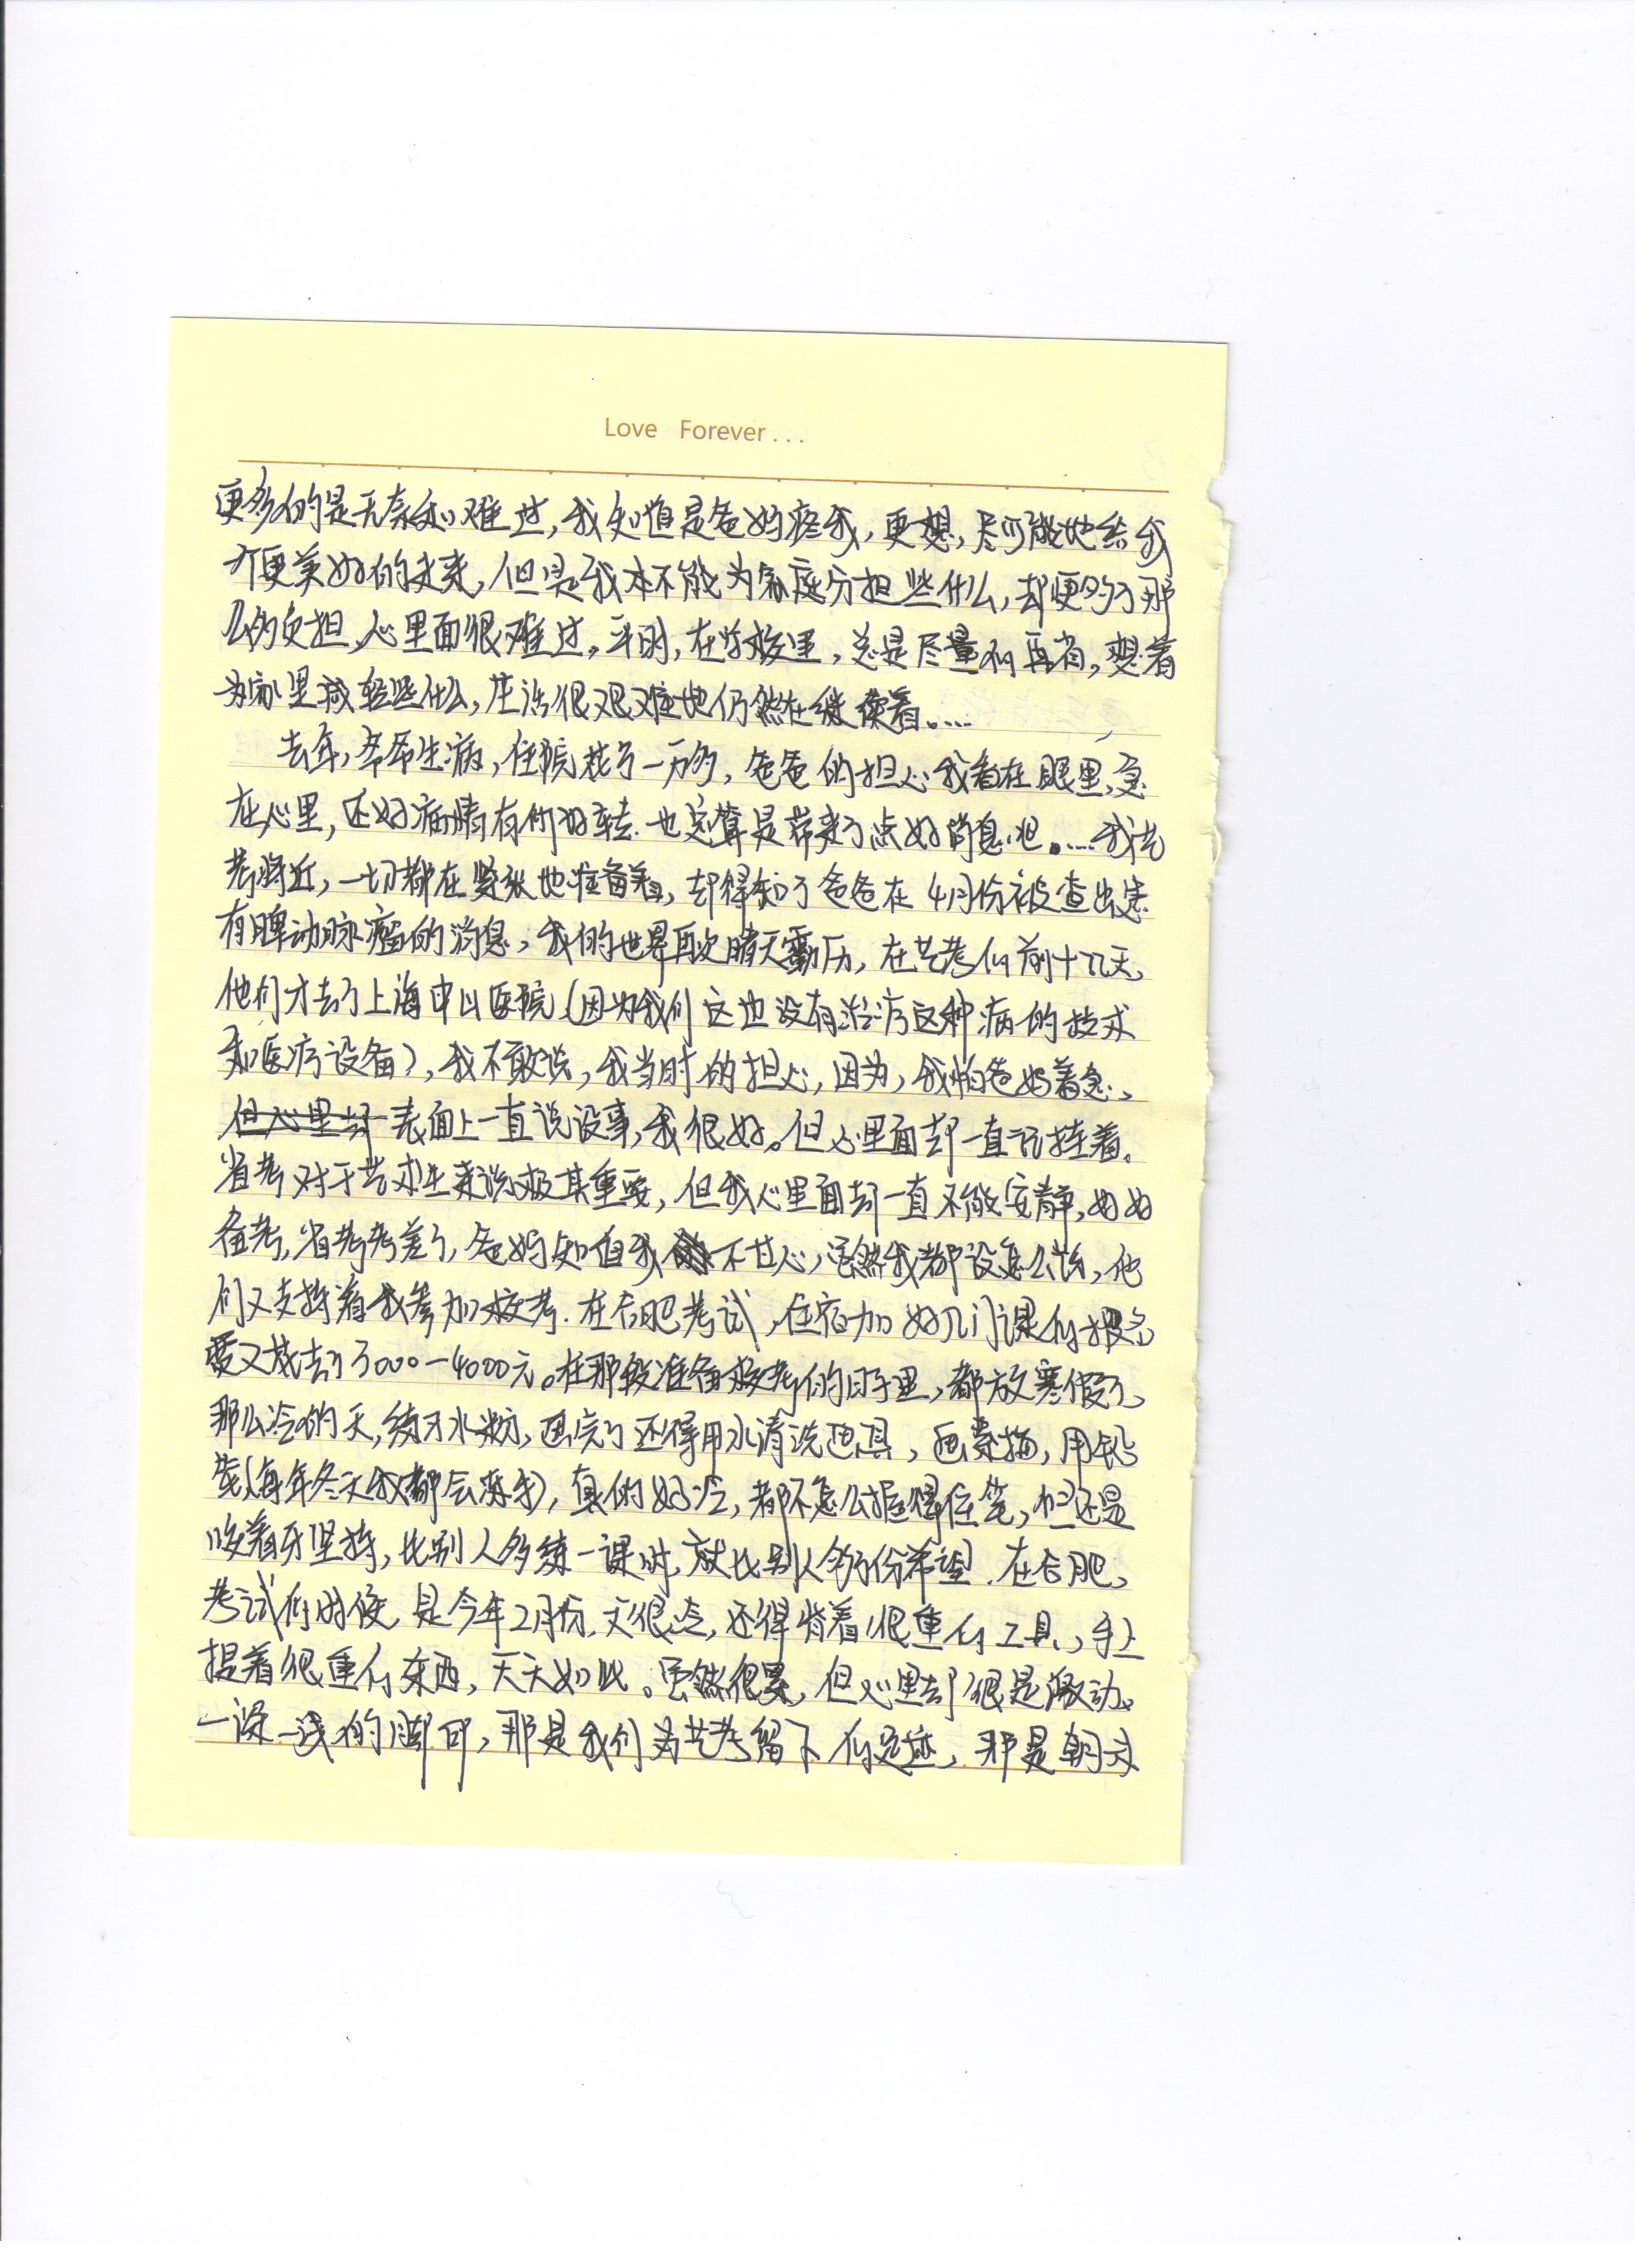 Love Forever...
更多的是无奈和难过，我知道是爸妈疼我，更想，尽可能地给我
个更美好的未来，但是我本不能为家庭分担些什么，却更多了那
么多负担，心里面很难过。平时，在学校里，总是尽量的再省，想着
为家里减轻些什么，生活很艰难地仍然在继续着。....
去年，爷爷生病，住院花了一万多，爸爸的担心我看在眼里，急
在心里，还好病情有所好转.也总算是带来了点好消息吧。.....我艺
考将近，一切都在紧张地准备着，却得知了爸爸在4月份被查出患
有脾动脉瘤的消息，我的世界再次晴天霹历，在艺考的前十几天，
他们才去了上海中山医院（因为我们这边没有治疗这种病的技术
和医疗设备），我不敢说，我当时的担心，因为，我怕爸妈着急，
但心里却表面上一直说没事，我很好。但心里面却一直记挂着。
省考对于艺术生来说极其重要，但我心里面却一直不能安静，好好
备考，省考考差了，爸妈知道我不甘心，虽然我都没怎么说，他
们又支持着我参加校考.在合肥考试，住宿加好几门课的报名
费又花去了3000-4000元。在那段准备校考的日子里，都放寒假了，
那么冷的天，练习水粉，画完了还得用水清洗画具，画素描，用铅
笔（每年冬天我都会冻手），真的好冷，都不怎么握得住笔，但还是
咬着牙坚持，比别人多练一课时，就比别人多份希望.在合肥，
考试的时候，是今年2月份.又很冷，还得背着很重的工具，手上
提着很重的东西，天天如此。虽然很累，但心里却很是激动。
一深一浅的脚印，那是我们为艺考留下的足迹，那是朝文